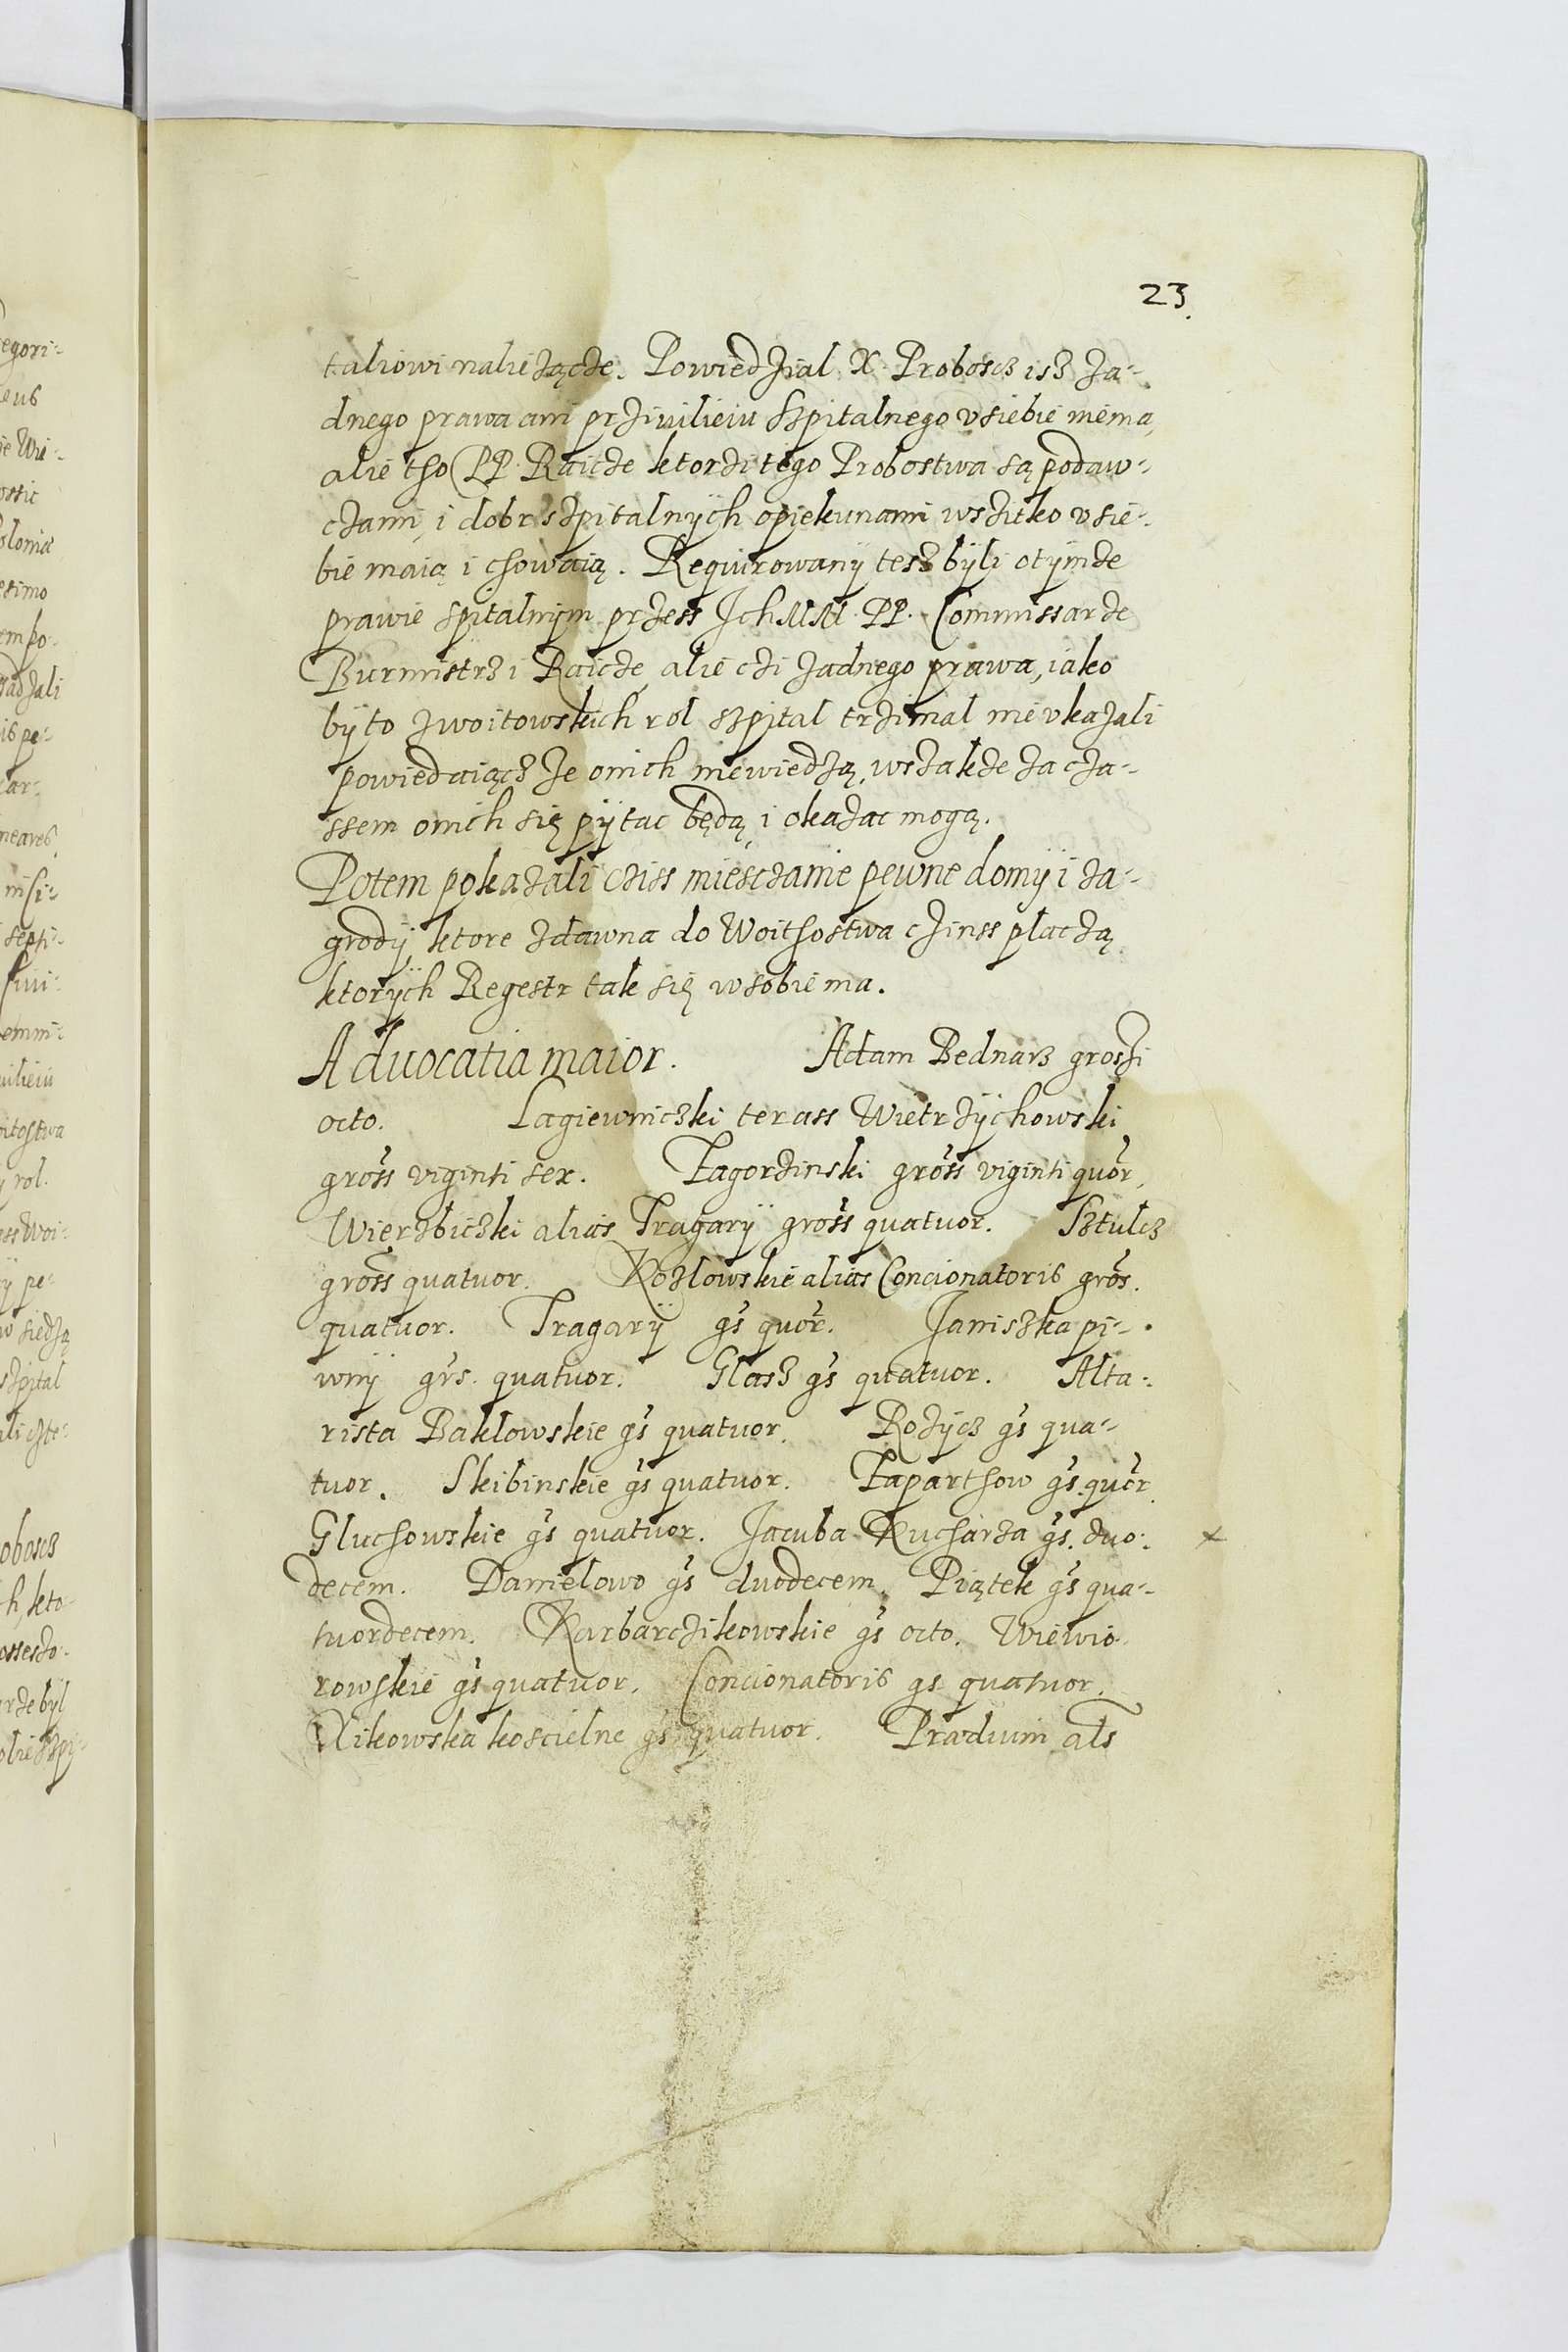 23.
taliowi nalieżącze. Powiedzial X. Proboscz isz za-
dnego prawa ani prziuilieiu szpitalnego v siebie niema,
alie tho PP. Raicze ktorzi tego Probostwa są podaw-
czami, i dobr szpitalnÿch opiekunami wszitko v sie-
bie maią i chowaią. Requirowanÿ tesz bÿli otÿmze
prawie spitalnÿm przess Ich MM. PP. Commissarze
Burmistrz i Raicze, alie czi zadnego prawa, iako
bÿ to zwoitowskich rol szpital trzimal nie vkazali
powiedaiącz ze onich niewiedzą, wszakze za cza-
ssem onich się pÿtac będą i okazac mogą.
Potem pokazali cziss miesczanie pewne domÿ i za-
grodÿ, ktore zdawna do Woithostwa czinss placzą
ktorÿch Regestr tak się w sobie ma.
Aduocatia maior. Adam Bednarz groszi
octo. Lagiewniczki terass Wietrzÿchowski
gross viginti sex. Zagorzinski gross viginti quor,
Wierzbiczki alias Tragarÿ gross quatuor. Sztulcz
gross quatuor. Kozlowskie alias Concionatoris gros.
quatuor. Tragarÿ gs quor. Janiszka pi-
wnÿ grs. quatuor. Glasz gs quatuor. Alta-
rista Baklowskie gs quatuor. Rozÿcz gs qua-
tuor. Skibinskie gs quatuor. Zaparthow gs. quor.
Gluchowskie gs quatuor. Jacuba Kucharza gs. duo-
decem. Danielowo gs duodecem. Piątek gs qua-
tuordecem. Karbarczikowskie gs octo. Wiewio-
rowskie gs quatuor. Concionatoris gs quatuor.
Xikowska koscielne gs quatuor. Prædium als